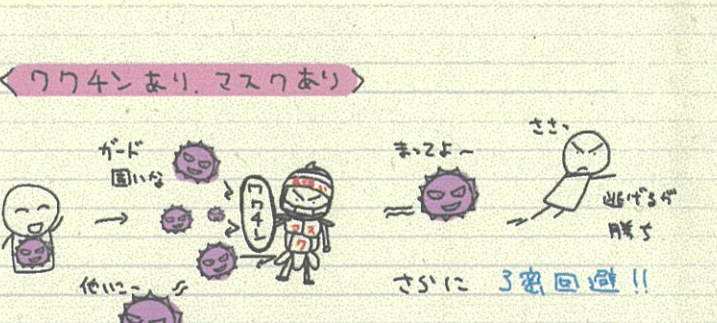 ワクチンあり、マスクあり
ガード
固いな
ワクチン
マス
ク
他いこ〜
まってよ〜
ささっ
逃げるが
勝ち
さらに 3密回避!!